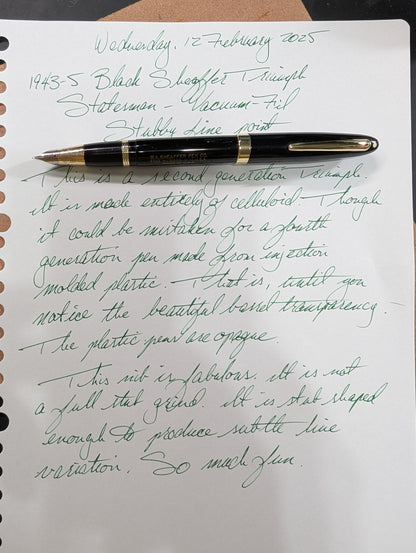 Wednesday, 12 February 2025
1943-5 Black Sheaffer Triumph
Statesman - Vacuum-Fil
Stubby Line point
W.A. SHEAFFER PEN CO.
This is a second generation Triumph.
It is made entirely of celluloid. Though
it could be mistaken for a fourth
generation pen made from injection
molded plastic. That is, until you
notice the beautiful barrel transparency.
The plastic pens are opaque.
This nib is fabulous. It is not
a full stub grind. It is stub shaped
enough to produce subtle line
variation. So much fun.